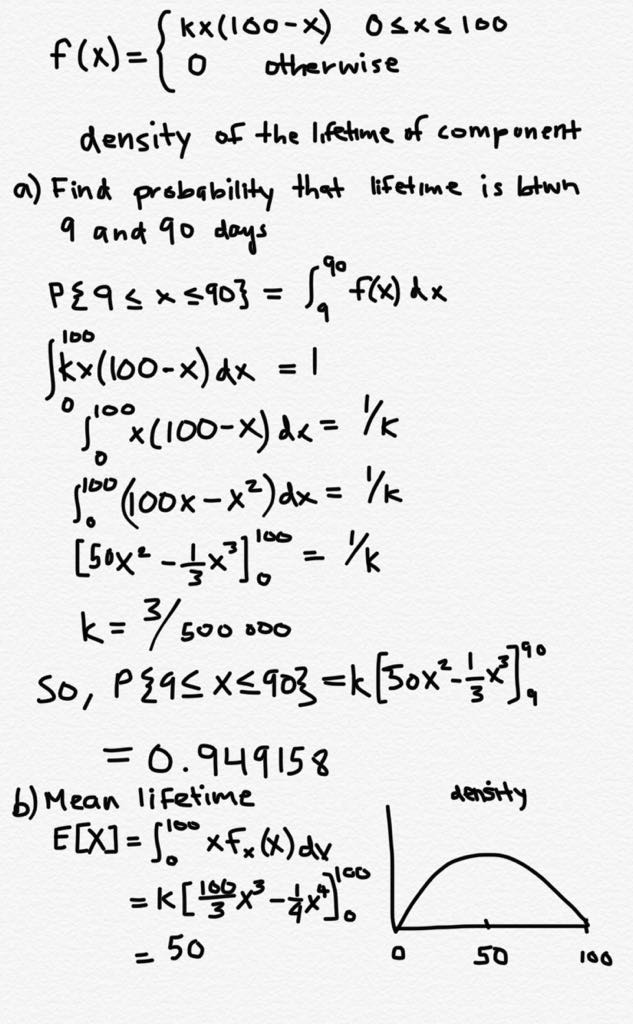 f(x) = { kx(100-x) 0 ≤ x ≤ 100
0 otherwise
density of the lifetime of component
a) Find probability that lifetime is btwn
9 and 90 days
P{9 ≤ x ≤ 90} = ∫₉⁹⁰ f(x) dx
∫₀¹⁰⁰ kx(100-x) dx = 1
∫₀¹⁰⁰ x(100-x) dx = 1/k
∫₀¹⁰⁰ (100x - x²) dx = 1/k
[50x² - 1/3 x³]₀¹⁰⁰ = 1/k
k = 3/500 000
So, P{9 ≤ X ≤ 90} = k[50x² - 1/3 x³]₉⁹⁰
= 0.949158
b) Mean lifetime
E[X] = ∫₀¹⁰⁰ x fₓ(x) dx
= k[100/3 x³ - 1/4 x⁴]₀¹⁰⁰
= 50
density
0 50 100